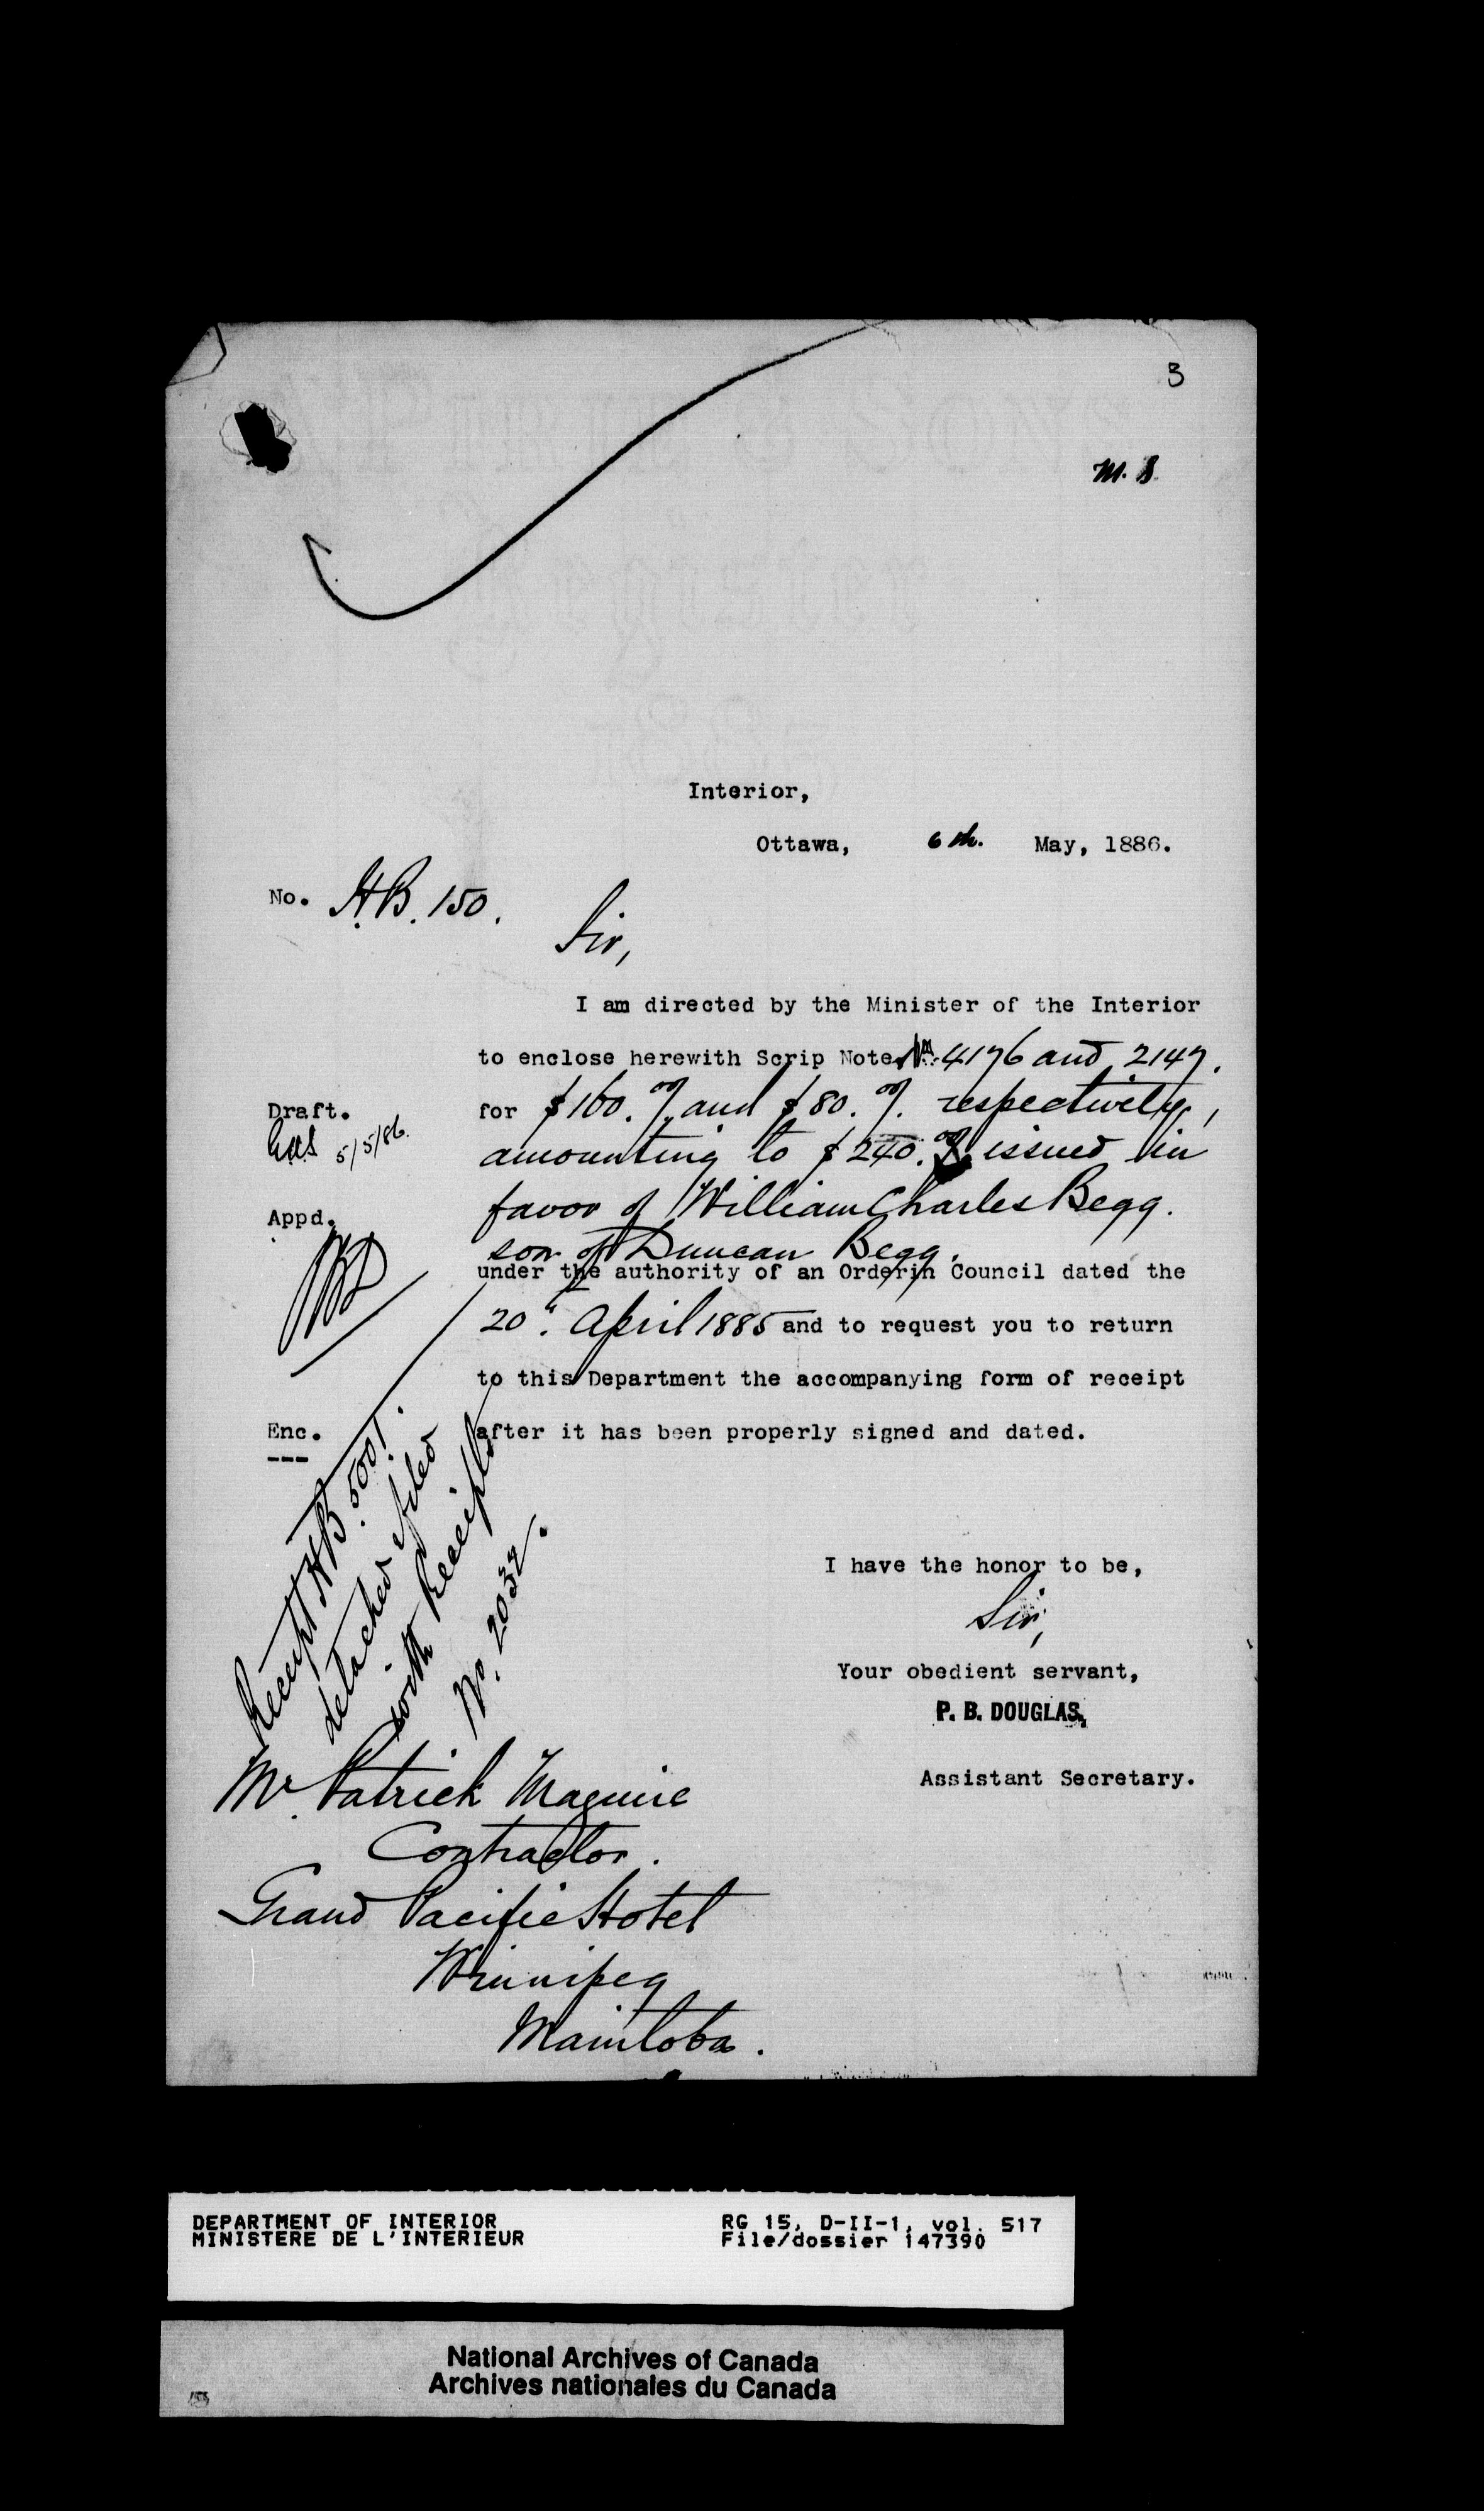 3
M. S.
Interior,
Ottawa, 6th. May, 1886.
No. H.B. 150.
Sir,
I am directed by the Minister of the Interior
to enclose herewith Scrip Note Nos 4176 and 2147.
for $160.00/. and $80.00/. respectively,
amounting to $240.00/. issued in
favor of William Charles Begg.
son of Duncan Begg.
under the authority of an Order in Council dated the
20". April 1885 and to request you to return
to this Department the accompanying form of receipt
after it has been properly signed and dated.
Draft.
5/5/86.
Appd.
Enc.
---
Receipt H.B. 5001.
detached & filed
with Receipts
No. 2032.
I have the honor to be,
Sir,
Your obedient servant,
P. B. DOUGLAS,
Assistant Secretary.
Mr. Patrick Maguire
Contractor.
Grand Pacific Hotel
Winnipeg
Manitoba.
DEPARTMENT OF INTERIOR RG 15, D-II-1, vol. 517
MINISTERE DE L'INTERIEUR File/dossier 147390
National Archives of Canada
Archives nationales du Canada